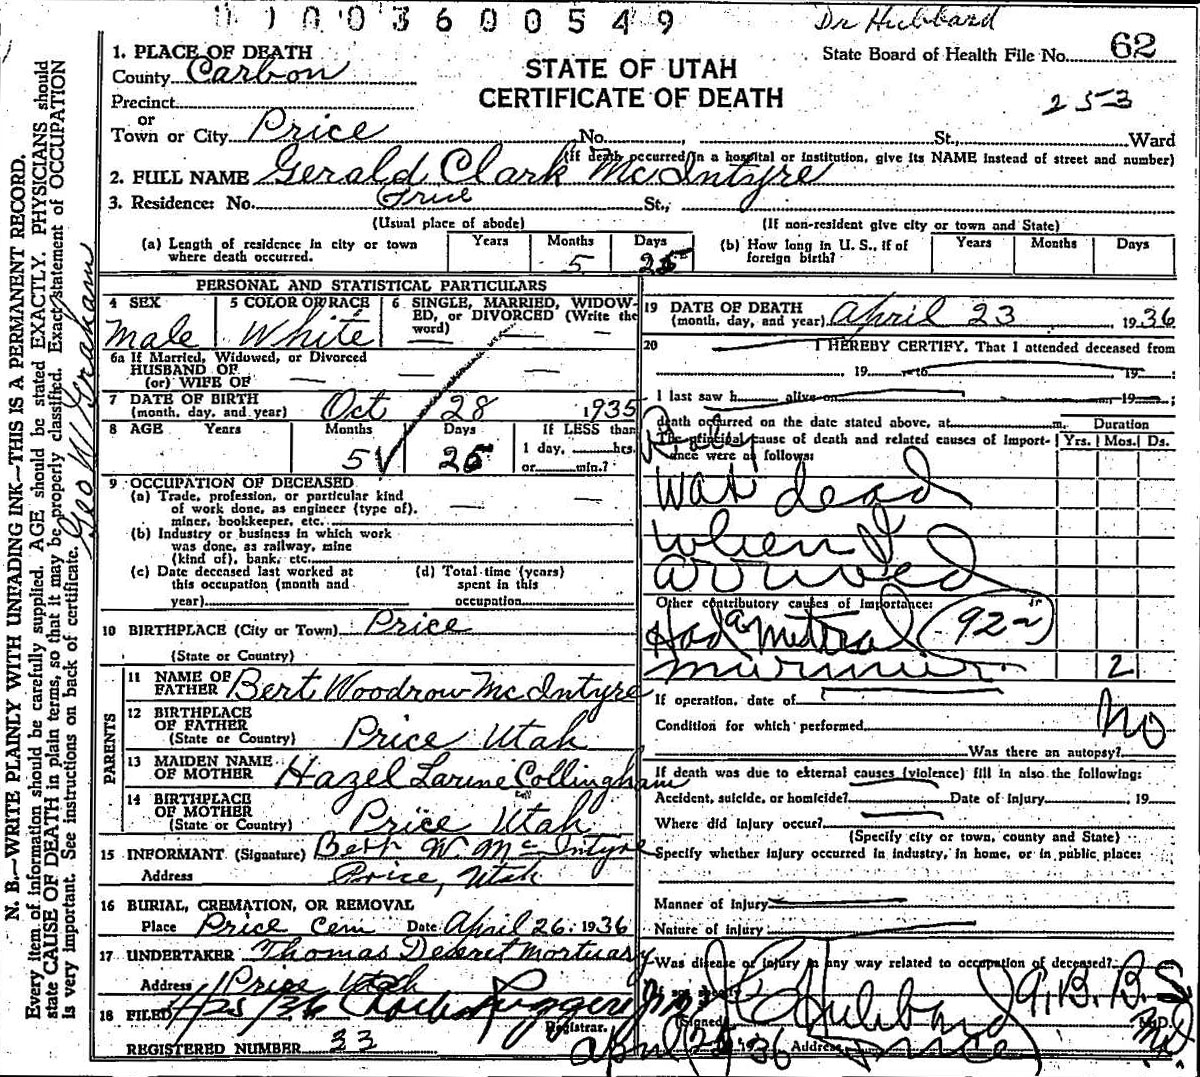 0 1 0 0 3 6 0 0 5 4 9
Dr Hubbard
State Board of Health File No. 62
1. PLACE OF DEATH
County Carbon
STATE OF UTAH
CERTIFICATE OF DEATH
Precinct
or
253
Town or City Price No. , St., Ward
(If death occurred in a hospital or institution, give its NAME instead of street and number)
2. FULL NAME Gerald Clark McIntyre
3. Residence: No. Price St.,
(Usual place of abode) (If non-resident give city or town and State)
(a) Length of residence in city or town where death occurred. Years Months 5 Days 25
(b) How long in U. S., if of foreign birth? Years Months Days
PERSONAL AND STATISTICAL PARTICULARS
4 SEX Male
5 COLOR OR RACE White
6 SINGLE, MARRIED, WIDOWED, or DIVORCED (Write the word) — —
6a If Married, Widowed, or Divorced
HUSBAND OF
(or) WIFE OF — — —
7 DATE OF BIRTH
(month, day, and year) Oct 28 1935
8 AGE Years Months 5 Days 25 If LESS than
1 day, hrs.
or min.?
9 OCCUPATION OF DECEASED
(a) Trade, profession, or particular kind
of work done, as engineer (type of),
miner, bookkeeper, etc.
(b) Industry or business in which work
was done, as railway, mine
(kind of), bank, etc.
(c) Date deceased last worked at
this occupation (month and
year)
(d) Total time (years)
spent in this
occupation
10 BIRTHPLACE (City or Town) Price
(State or Country)
PARENTS
11 NAME OF
FATHER Bert Woodrow McIntyre
12 BIRTHPLACE
OF FATHER
(State or Country) Price Utah
13 MAIDEN NAME
OF MOTHER Hazel Larine Collingham
14 BIRTHPLACE
OF MOTHER
(State or Country) Price Utah
15 INFORMANT (Signature) Bert W. McIntyre
Address Price, Utah
16 BURIAL, CREMATION, OR REMOVAL
Place Price Cem Date April 26, 1936
17 UNDERTAKER Thomas Deseret Mortuary
Address Price Utah
18 FILED 4/25/36
Registrar.
REGISTERED NUMBER 33
19 DATE OF DEATH
(month, day, and year) April 23, 1936
20 I HEREBY CERTIFY, That I attended deceased from
19 to 19 ;
I last saw h alive on 19 ;
death occurred on the date stated above, at m.
The principal cause of death and related causes of importance were as follows:
Duration
Yrs. Mos. Ds.
was dead
when I
arrived
Other contributory causes of importance:
Had a mitral 92
murmur 2
If operation, date of
Condition for which performed
Was there an autopsy? No
If death was due to external causes (violence) fill in also the following:
Accident, suicide, or homicide? Date of injury , 19
Where did injury occur?
(Specify city or town, county and State)
Specify whether injury occurred in industry, in home, or in public place:
Manner of Injury
Nature of injury
Was disease or injury in any way related to occupation of deceased?
(Signed) Hubbard M.D.
April 25 1936 Address Price
N. B.—WRITE PLAINLY WITH UNFADING INK—THIS IS A PERMANENT RECORD.
Every item of information should be carefully supplied. AGE should be stated EXACTLY. PHYSICIANS should
state CAUSE OF DEATH in plain terms, so that it may be properly classified. Exact statement of OCCUPATION
is very important. See instructions on back of certificate.
Geo W Graham